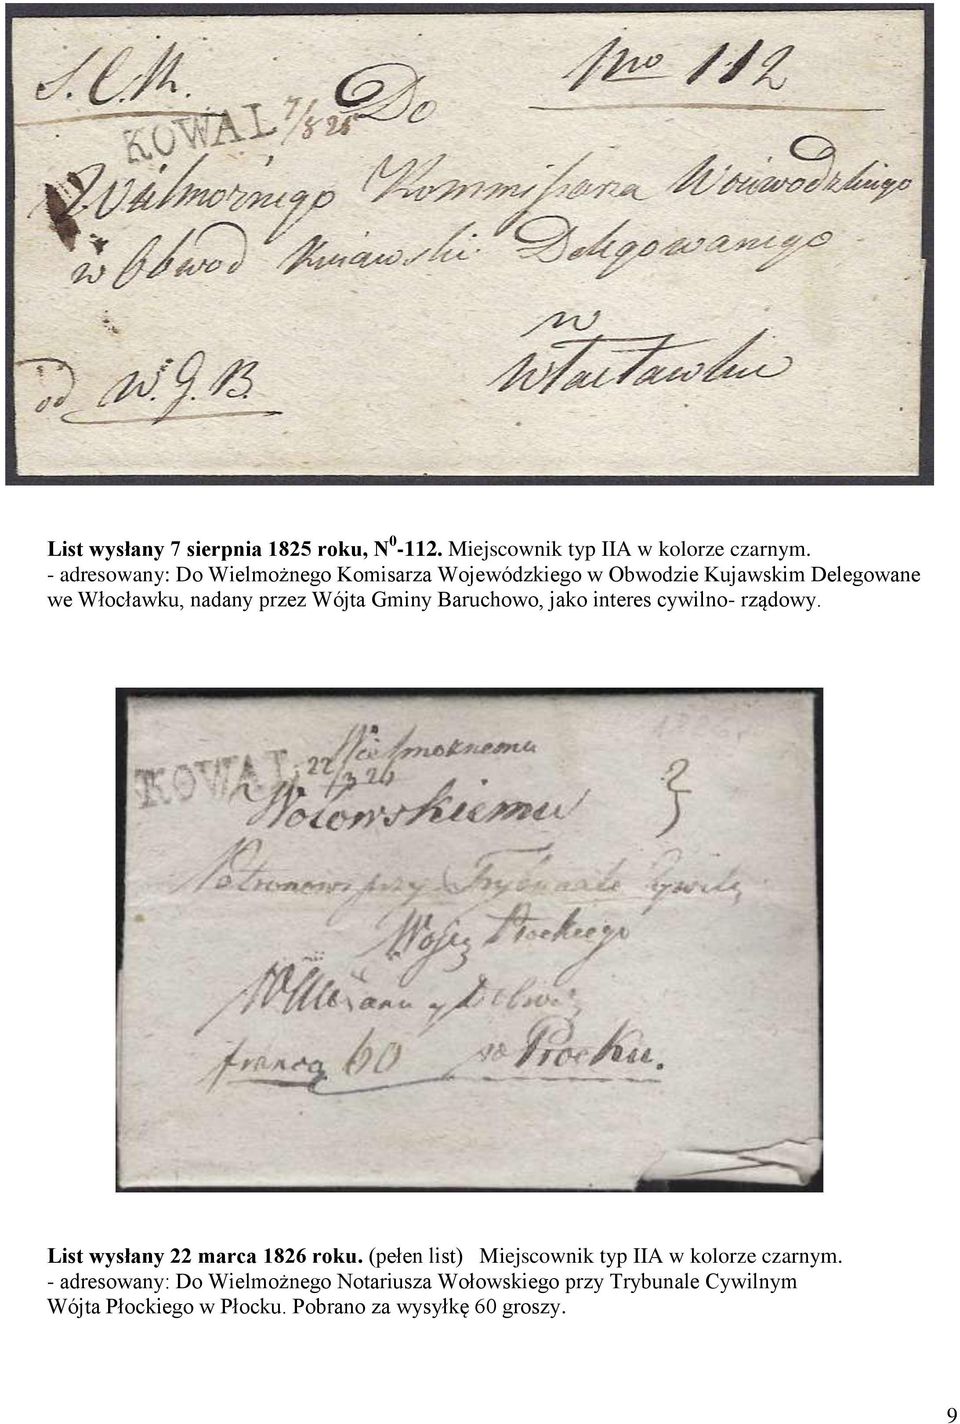 S.C.M.
No 112
KOWAL 7/8 25 Do
Wielmożnego Kommissarza Woiewodzkiego
w Obwod Kuiawski Delegowanego
w
od W.G.B. Włacławku
List wysłany 7 sierpnia 1825 roku, N⁰-112. Miejscownik typ IIA w kolorze czarnym.
- adresowany: Do Wielmożnego Komisarza Wojewódzkiego w Obwodzie Kujawskim Delegowane
we Włocławku, nadany przez Wójta Gminy Baruchowo, jako interes cywilno- rządowy.
Wielmożnemu
KOWAL 22/3 26
Wołowskiemu
Patronowi przy Trybunale Cywil
Płockiego
franco 60 w Płocku.
List wysłany 22 marca 1826 roku. (pełen list) Miejscownik typ IIA w kolorze czarnym.
- adresowany: Do Wielmożnego Notariusza Wołowskiego przy Trybunale Cywilnym
Wójta Płockiego w Płocku. Pobrano za wysyłkę 60 groszy.
9